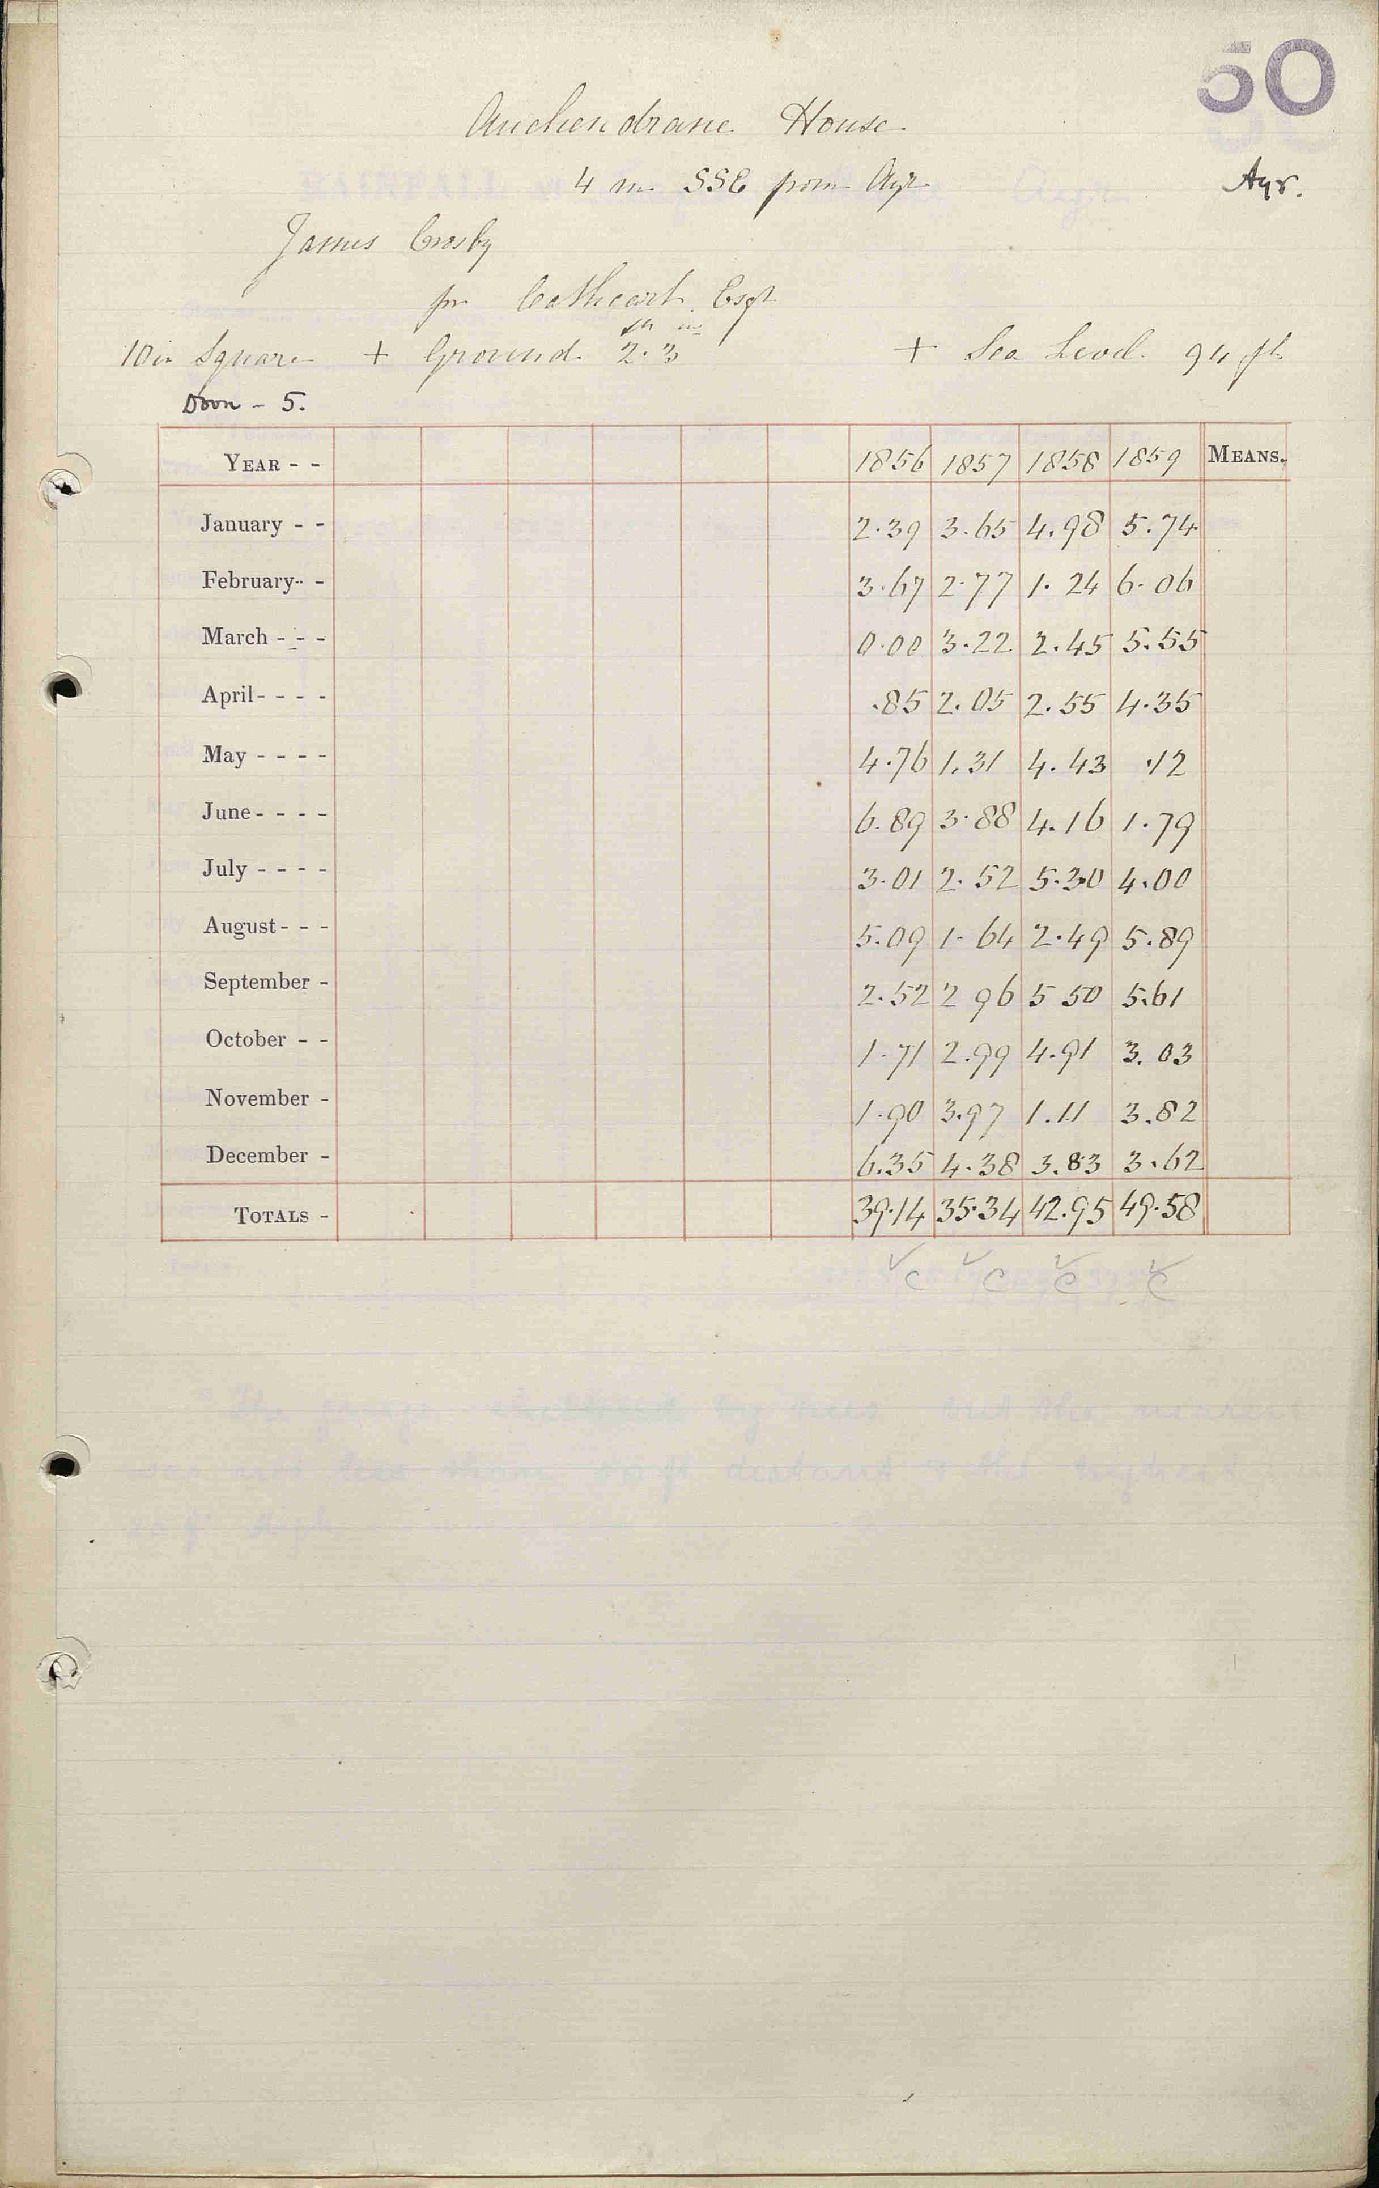 50
Auchendrane House
4 m SSE from Ayr
Ayr.
James Crosby
for Cathcart Esqr
ft in
10 in Square + Ground 2.3 + Sea Level 94 ft
Doon - 5.
YEAR - - 1856 1857 1858 1859 MEANS.
January - - 2.39 3.65 4.98 5.74
February - - 3.67 2.77 1.24 6.06
March - - - 0.00 3.22 2.45 5.55
April - - - - .85 2.05 2.55 4.35
May - - - - 4.76 1.31 4.43 .12
June - - - - 6.89 3.88 4.16 1.79
July - - - - 3.01 2.52 5.30 4.00
August - - - 5.09 1.64 2.49 5.89
September - 2.52 2 96 5 50 5.61
October - - 1.71 2.99 4.91 3.03
November - 1.90 3.97 1.11 3.82
December - 6.35 4.38 3.83 3.62
TOTALS - 39.14 35.34 42.95 49.58
✓c ✓c ✓c ✓c